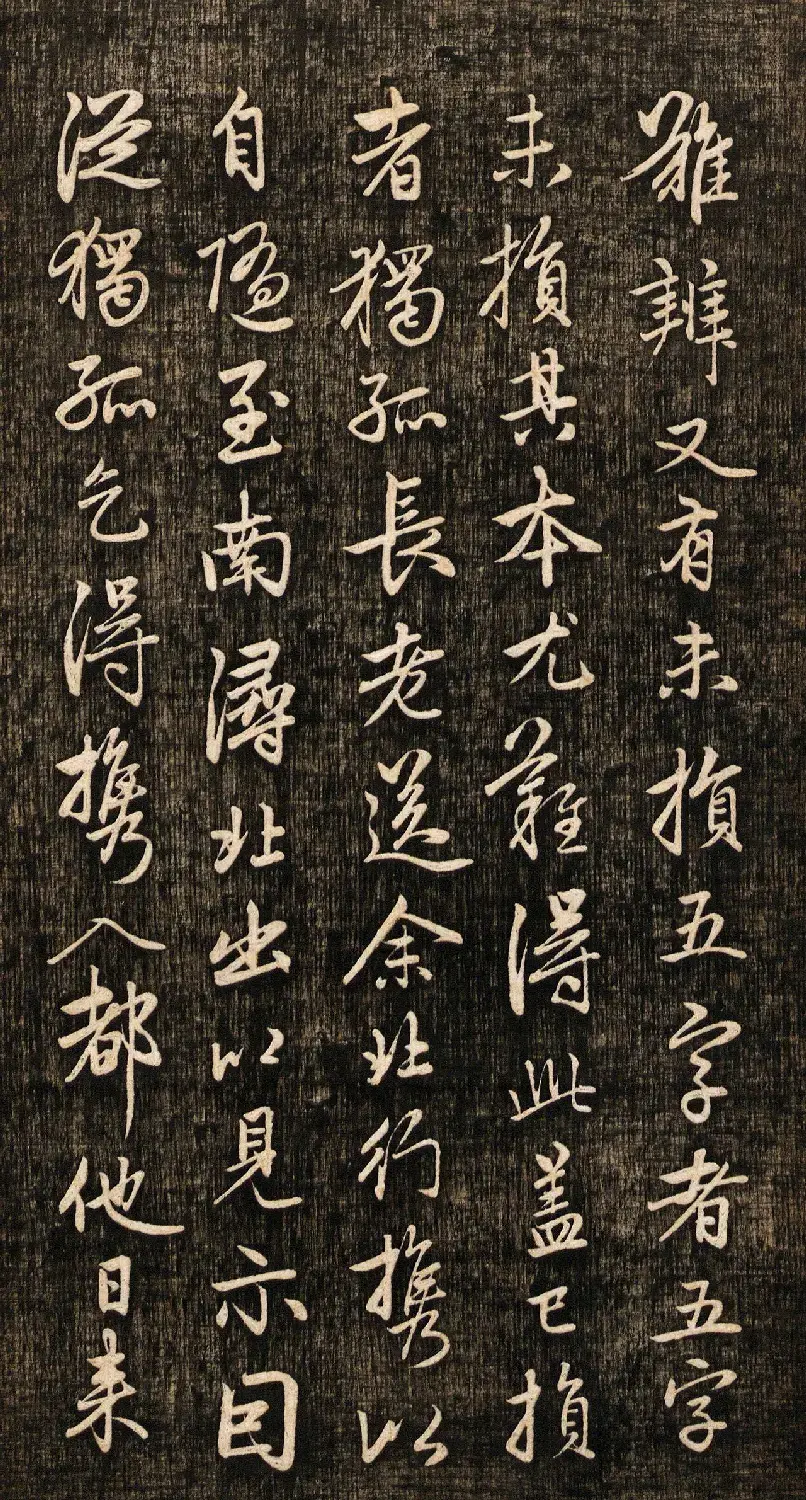 難辨又有未損五字者五字
未損其本尤難得此盖已損
者獨孤長老送余北行携以
自隨至南潯北出以見示因
從獨孤乞得携入都他日来